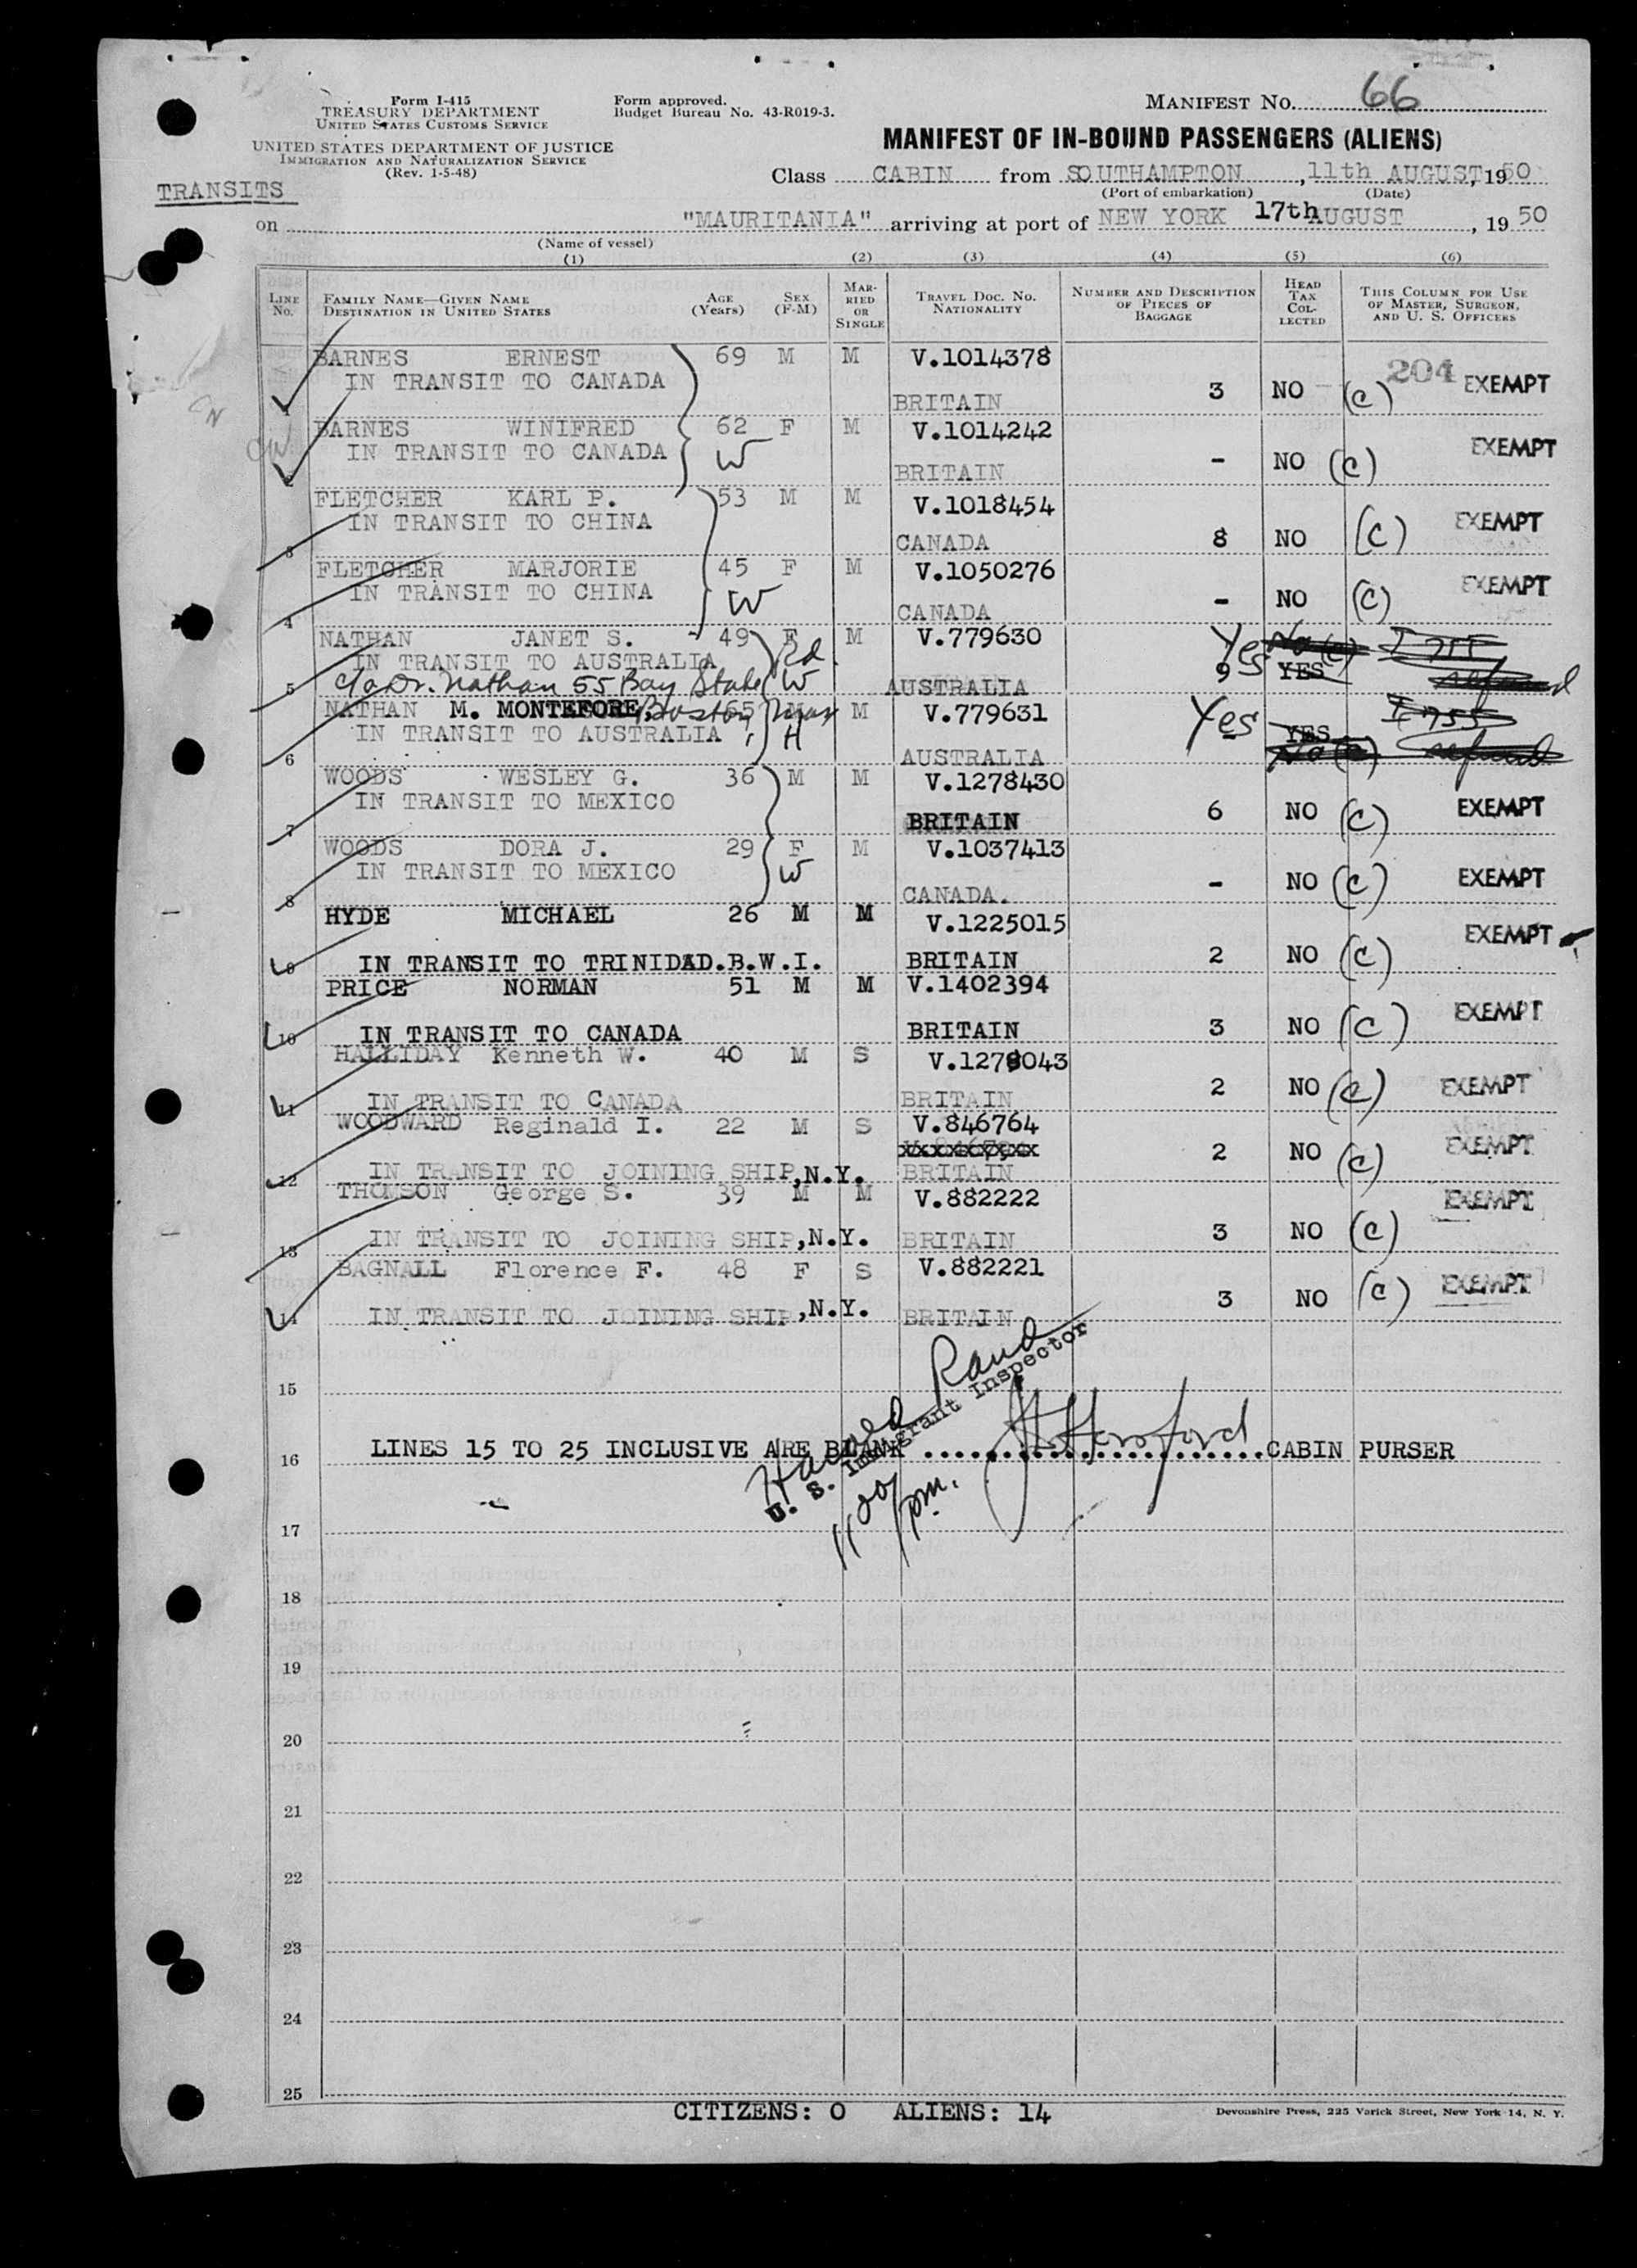 Form I-415
TREASURY DEPARTMENT
UNITED STATES CUSTOMS SERVICE
UNITED STATES DEPARTMENT OF JUSTICE
IMMIGRATION AND NATURALIZATION SERVICE
(Rev. 1-5-48)
Form approved.
Budget Bureau No. 43-R019-3.
MANIFEST NO. 66
MANIFEST OF IN-BOUND PASSENGERS (ALIENS)
Class CABIN from SOUTHAMPTON, 11th AUGUST, 1950
(Port of embarkation) (Date)
TRANSITS
on "MAURITANIA" arriving at port of NEW YORK 17th AUGUST, 1950
(Name of vessel)
(1) (2) (3) (4) (5) (6)
LINE No. FAMILY NAME—GIVEN NAME DESTINATION IN UNITED STATES AGE (Years) SEX (F-M) MARRIED OR SINGLE TRAVEL DOC. NO. NATIONALITY NUMBER AND DESCRIPTION OF PIECES OF BAGGAGE HEAD TAX COLLECTED THIS COLUMN FOR USE OF MASTER, SURGEON, AND U. S. OFFICERS
BARNES ERNEST 69 M M V.1014378
IN TRANSIT TO CANADA 204 EXEMPT
1 BRITAIN 3 NO (C)
CN
BARNES WINIFRED 62 F M V.1014242
IN TRANSIT TO CANADA W EXEMPT
2 BRITAIN - NO (C)
FLETCHER KARL P. 53 M M V.1018454
IN TRANSIT TO CHINA EXEMPT
3 CANADA 8 NO (C)
FLETCHER MARJORIE 45 F M V.1050276
IN TRANSIT TO CHINA W EXEMPT
4 CANADA - NO (C)
NATHAN JANET S. 49 F M V.779630
IN TRANSIT TO AUSTRALIA Yes No (C) I 755
5 c/o Dr. Nathan 55 Bay State W AUSTRALIA 9 YES refund
NATHAN M. MONTEFORE Boston 65 M M V.779631
IN TRANSIT TO AUSTRALIA H Yes - YES I 755
6 AUSTRALIA No (C) refund
WOODS WESLEY G. 36 M M V.1278430
IN TRANSIT TO MEXICO
7 BRITAIN 6 NO (C) EXEMPT
WOODS DORA J. 29 F M V.1037413
IN TRANSIT TO MEXICO W
8 CANADA. - NO (C) EXEMPT
HYDE MICHAEL 26 M M V.1225015
EXEMPT
9 IN TRANSIT TO TRINIDAD.B.W.I. BRITAIN 2 NO (C)
PRICE NORMAN 51 M M V.1402394
EXEMPT
10 IN TRANSIT TO CANADA BRITAIN 3 NO (C)
HALLIDAY Kenneth W. 40 M S V.1278043
2 NO (C) EXEMPT
11 IN TRANSIT TO CANADA BRITAIN
WOODWARD Reginald I. 22 M S V.846764
2 NO (C) EXEMPT
12 IN TRANSIT TO JOINING SHIP, N.Y. BRITAIN
THOMSON George S. 39 M M V.882222 EXEMPT
13 IN TRANSIT TO JOINING SHIP, N.Y. BRITAIN 3 NO (C)
BAGNALL Florence F. 48 F S V.882221
EXEMPT
14 IN TRANSIT TO JOINING SHIP, N.Y. BRITAIN 3 NO (C)
15
Harold Rand
U. S. Immigrant Inspector
16 LINES 15 TO 25 INCLUSIVE ARE BLANK ........................CABIN PURSER
17
18
19
20
21
22
23
24
25
CITIZENS: 0 ALIENS: 14
Devonshire Press, 225 Varick Street, New York 14, N. Y.